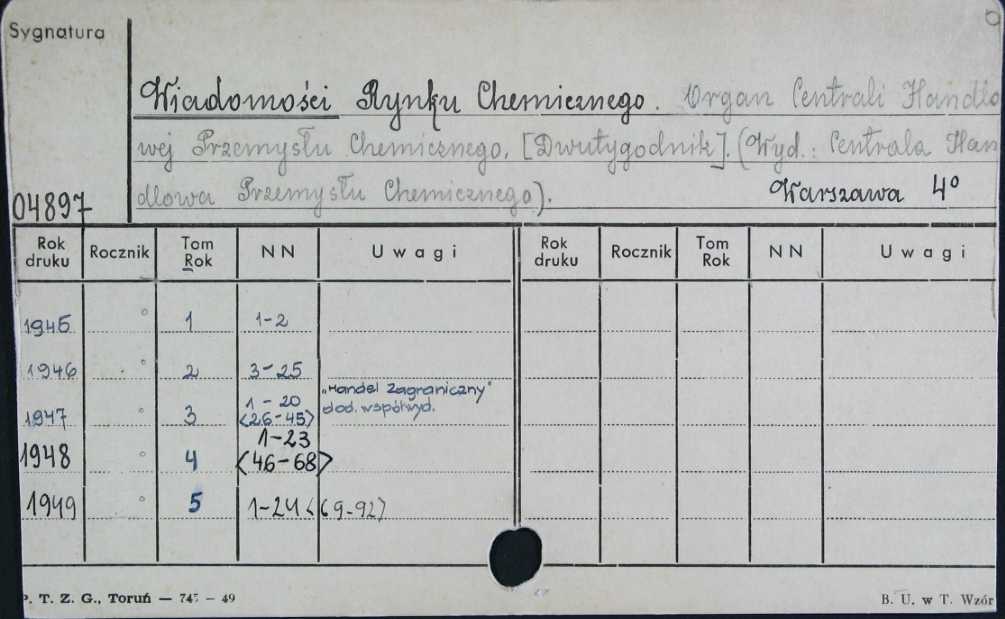 Sygnatura
Wiadomości Rynku Chemicznego. Organ Centrali Handlo
wej Przemysłu Chemicznego. [Dwutygodnik]. (Wyd.: Centrala Han
dlowa Przemysłu Chemicznego).
Warszawa 4°
04897
Rok druku Rocznik Tom Rok NN Uwagi Rok druku Rocznik Tom Rok NN Uwagi
1945 ° 1 1-2
1946 ° 2 3-25
1947 ° 3 1-20 <26-45> "Handel Zagraniczny" dod. współwyd.
1948 ° 4 1-23 <46-68>
1949 ° 5 1-24 <69-92>
P. T. Z. G., Toruń — 745 — 49
B. U. w T. Wzór